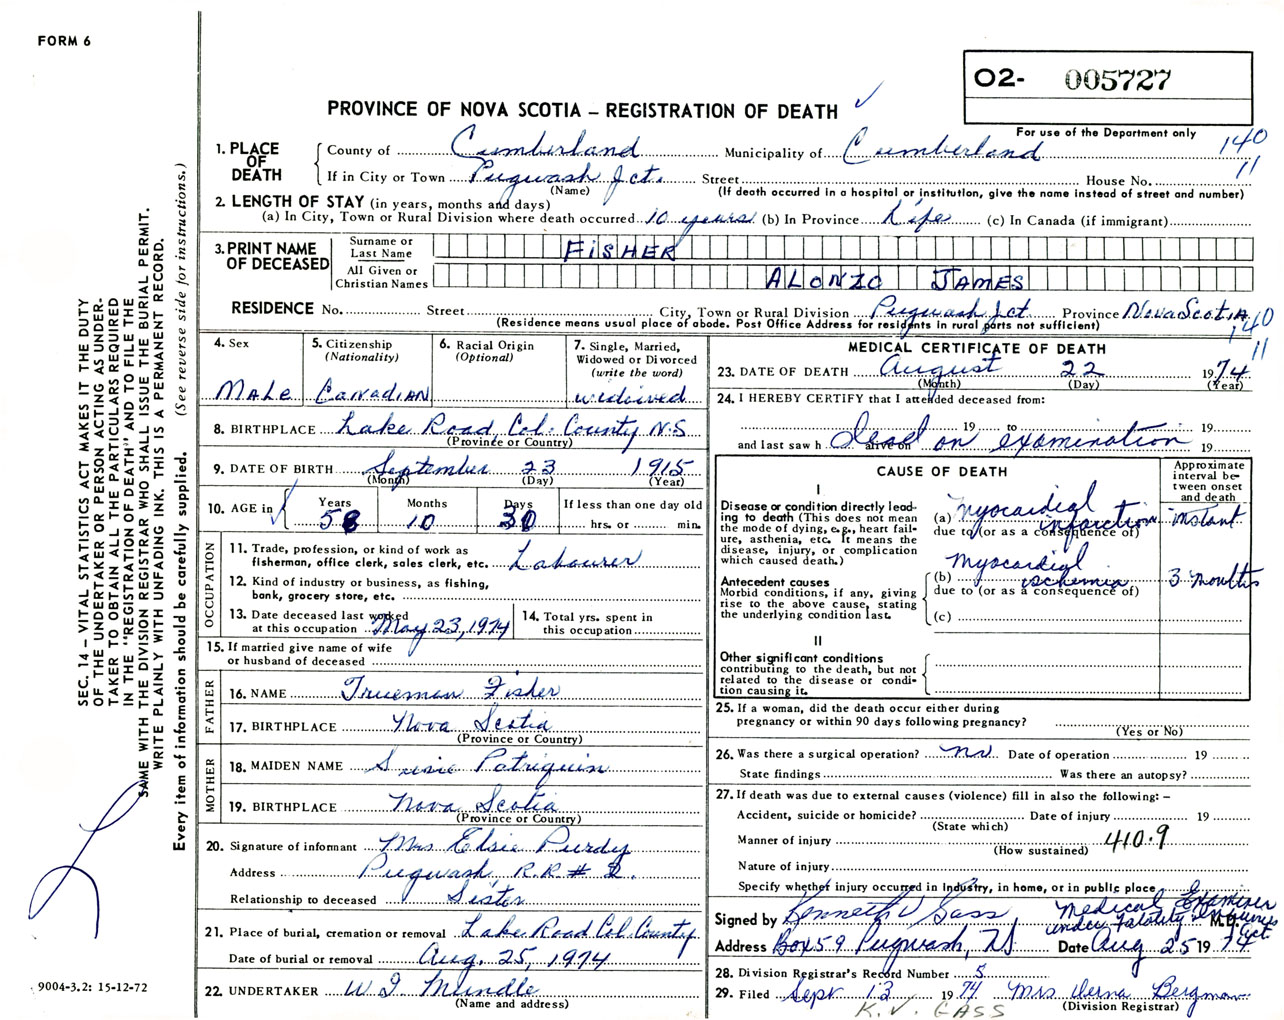 FORM 6
O2- 005727
PROVINCE OF NOVA SCOTIA – REGISTRATION OF DEATH
For use of the Department only
140
11
1. PLACE OF DEATH
County of Cumberland Municipality of Cumberland
If in City or Town Pugwash Jct. Street House No.
(Name) (If death occurred in a hospital or institution, give the name instead of street and number)
2. LENGTH OF STAY (in years, months and days)
(a) In City, Town or Rural Division where death occurred 10 years (b) In Province Life (c) In Canada (if immigrant)
3. PRINT NAME OF DECEASED
Surname or Last Name FISHER
All Given or Christian Names ALONZO JAMES
RESIDENCE No. Street City, Town or Rural Division Pugwash Jct Province Nova Scotia
(Residence means usual place of abode. Post Office Address for residents in rural parts not sufficient)
140
11
4. Sex Male
5. Citizenship (Nationality) Canadian
6. Racial Origin (Optional)
7. Single, Married, Widowed or Divorced (write the word) widowed
8. BIRTHPLACE Lake Road, Col. County N.S
(Province or Country)
9. DATE OF BIRTH September 23 1915
(Month) (Day) (Year)
10. AGE in Years 58 Months 10 Days 30 If less than one day old hrs. or min.
OCCUPATION
11. Trade, profession, or kind of work as fisherman, office clerk, sales clerk, etc. Labourer
12. Kind of industry or business, as fishing, bank, grocery store, etc.
13. Date deceased last worked at this occupation May 23, 1974
14. Total yrs. spent in this occupation
15. If married give name of wife or husband of deceased
FATHER
16. NAME Trueman Fisher
17. BIRTHPLACE Nova Scotia
(Province or Country)
MOTHER
18. MAIDEN NAME Susie Patriquin
19. BIRTHPLACE Nova Scotia
(Province or Country)
20. Signature of informant Mrs Elsie Purdy
Address Pugwash, R.R. # 2.
Relationship to deceased Sister
21. Place of burial, cremation or removal Lake Road Col. County
Date of burial or removal Aug. 25, 1974
22. UNDERTAKER W J Mundle
(Name and address)
MEDICAL CERTIFICATE OF DEATH
23. DATE OF DEATH August 22 1974
(Month) (Day) (Year)
24. I HEREBY CERTIFY that I attended deceased from:
19 to 19
and last saw h alive on dead on examination 19
CAUSE OF DEATH
Approximate interval between onset and death
I
Disease or condition directly leading to death (This does not mean the mode of dying, e.g., heart failure, asthenia, etc. It means the disease, injury, or complication which caused death.)
(a) myocardial infarction instant
due to (or as a consequence of)
Antecedent causes
Morbid conditions, if any, giving rise to the above cause, stating the underlying condition last.
(b) myocardial ischemia 3 months
due to (or as a consequence of)
(c)
II
Other significant conditions contributing to the death, but not related to the disease or condition causing it.
25. If a woman, did the death occur either during pregnancy or within 90 days following pregnancy?
(Yes or No)
26. Was there a surgical operation? no Date of operation 19
State findings Was there an autopsy?
27. If death was due to external causes (violence) fill in also the following: –
Accident, suicide or homicide? Date of injury 19
(State which)
Manner of injury 410.9
(How sustained)
Nature of injury
Specify whether injury occurred in Industry, in home, or in public place
Signed by Kenneth V Gass Medical Examiner under Fatality Inquiries Act M.D.
Address Box 59 Pugwash, NS Date Aug 25 1974
28. Division Registrar's Record Number 5
29. Filed Sept 13 1974 Mrs Verna Bergman
(Division Registrar)
K. V. GASS
SEC. 14 – VITAL STATISTICS ACT MAKES IT THE DUTY
OF THE UNDERTAKER OR PERSON ACTING AS UNDER-
TAKER TO OBTAIN ALL THE PARTICULARS REQUIRED
IN THE "REGISTRATION OF DEATH" AND TO FILE THE
SAME WITH THE DIVISION REGISTRAR WHO SHALL ISSUE THE BURIAL PERMIT.
WRITE PLAINLY WITH UNFADING INK. THIS IS A PERMANENT RECORD.
Every item of information should be carefully supplied. (See reverse side for instructions.)
9004-3.2: 15-12-72